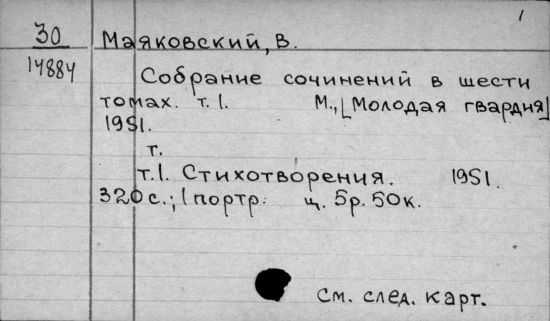 1
30
14884
Маяковский, В.
Собрание сочинений в шести
томах. т. 1. М., [Молодая гвардия]
1951.
т.
т.1. Стихотворения. 1951.
320 с.; 1 портр. ц. 5р. 50к.
см. след. карт.